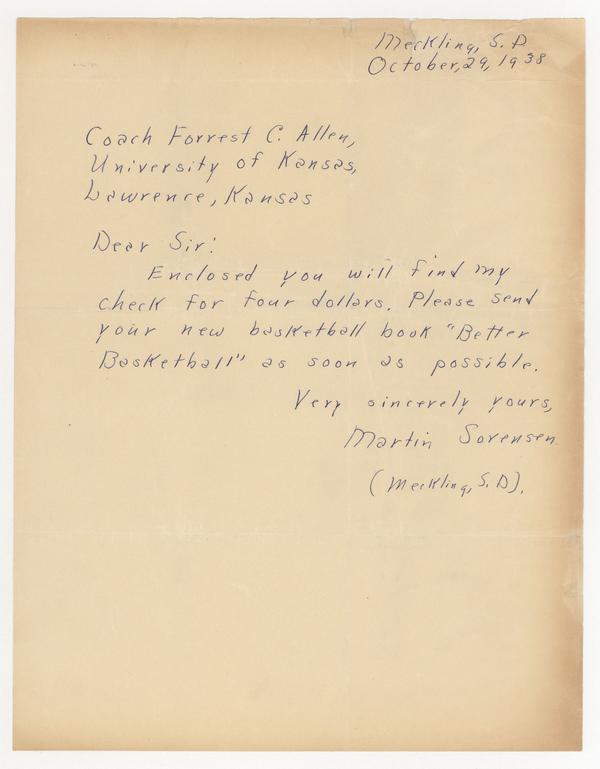 Meckling, S. D.
October, 29, 1938
Coach Forrest C. Allen,
University of Kansas,
Lawrence, Kansas
Dear Sir:
Enclosed you will find my
check for four dollars. Please send
your new basketball book "Better
Basketball" as soon as possible.
Very sincerely yours,
Martin Sorensen
(Meckling, S. D).